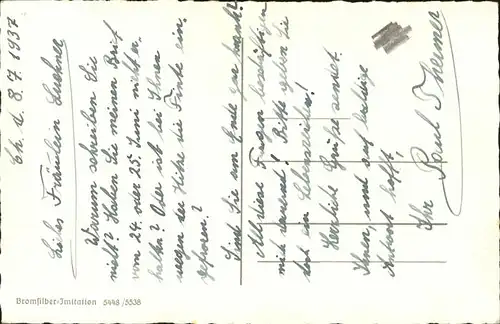 Ch. d. 8.7.1937
Liebes Fräulein Luehnee
Warum schreiben Sie
nicht? Haben Sie meinen Brief
vom 24. oder 25. Juni nicht er-
halten? Oder ist bei Ihnen
wegen der Hitze die Tinte ein-
gefroren?
Sind Sie am Ende gar krank?
All diese Fragen beschäftigen
mich dauernd! Bitte geben Sie
bald ein Lebenszeichen!
Herzliche Grüße sendet
Ihnen, und auf baldige
Antwort hofft,
Ihr Paul Thieme
Bromsilber-Imitation 5448/5538